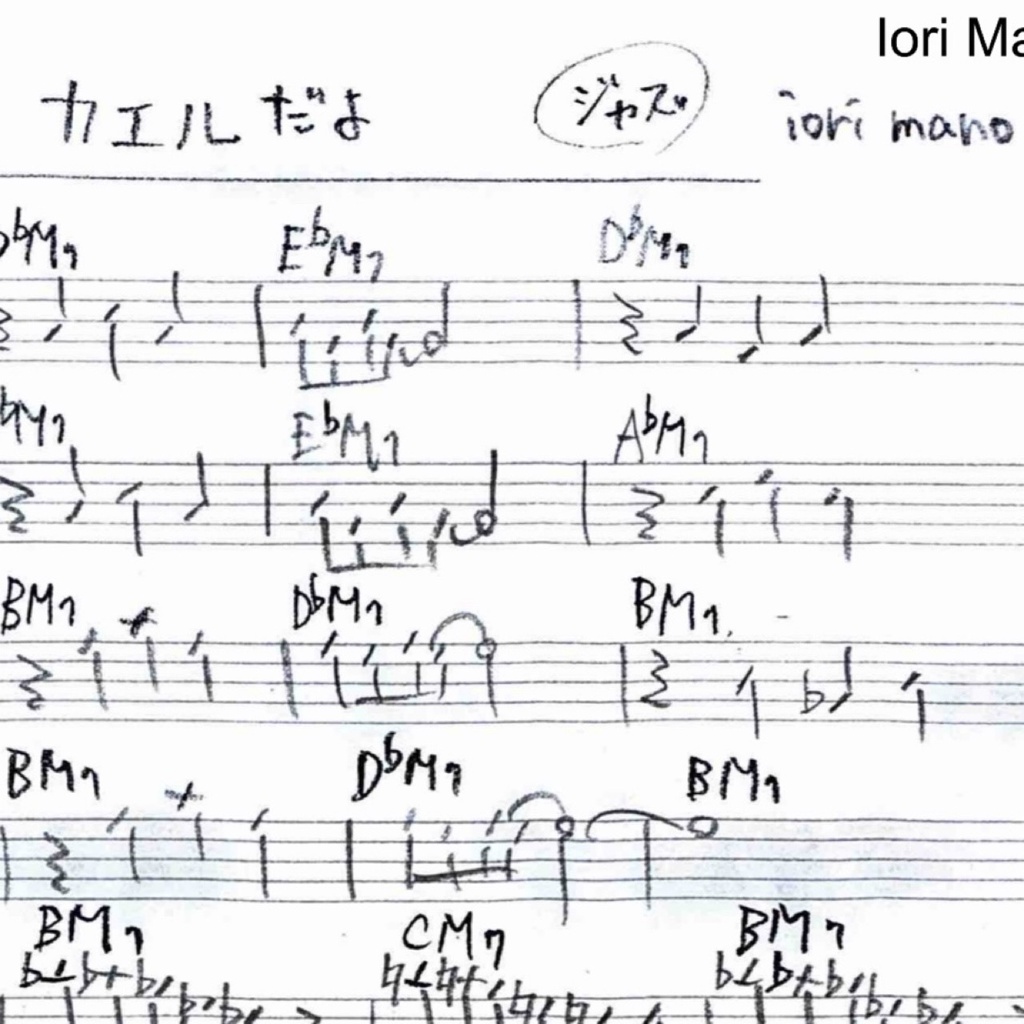 Iori Ma
カエルだよ ジャズ iori mano
D♭M7 E♭M7 D♭M7
♭M7 E♭M7 A♭M7
BM7 D♭M7 BM7
BM7 D♭M7 BM7
BM7 CM7 BM7